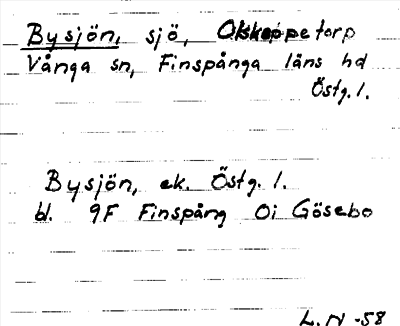 Bysjön, sjö, Olskeppetorp
Vånga sn, Finspånga läns hd
Östg. l.
Bysjön, ek. Östg. l.
bl. 9F Finspång 0i Gösebo
L. N -58